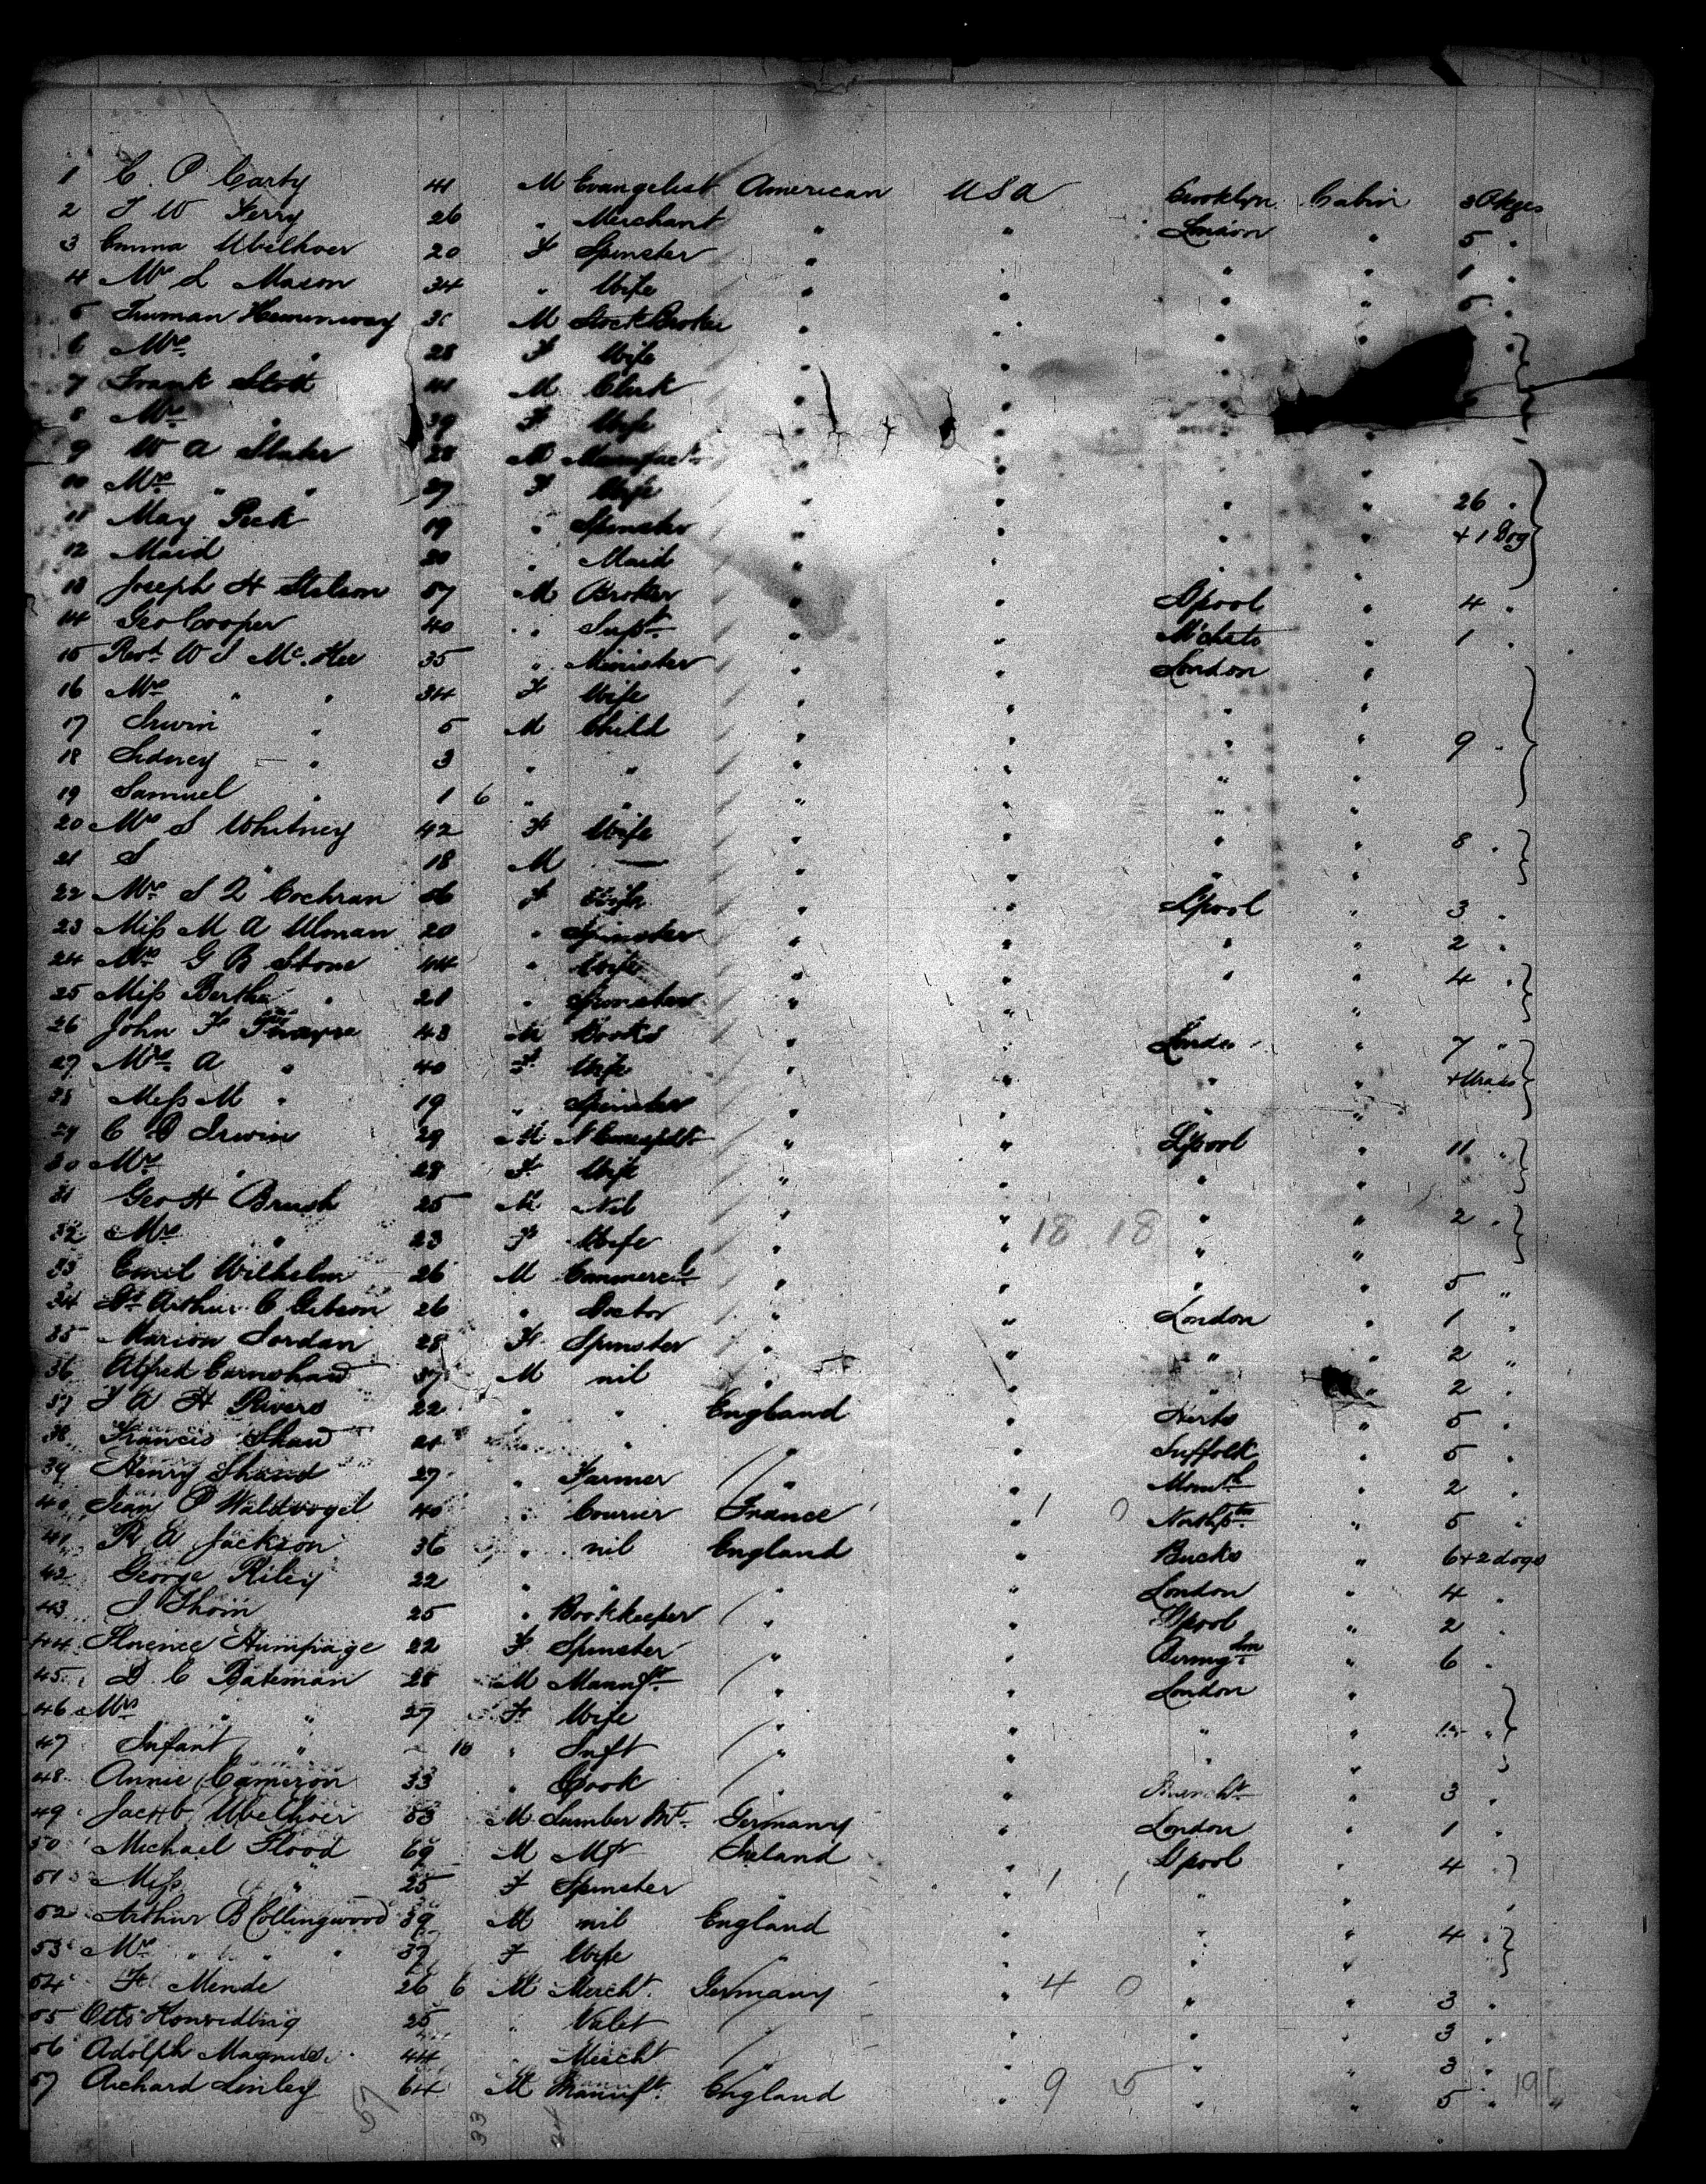 1 C. P Carty 41 M Evangelist American USA Brooklyn Cabin 3 Pkges
2 F W Ferry 26 " Merchant " " London " 5 "
3 Emma Ubelhoer 20 F Spinster " " " " 1 "
4 Mrs L Mason 34 " Wife " " " " 5 "
5 Truman Hemmway M Stock Broker " " "
6 Mrs " 28 F Wife " " "
7 Frank Stott 41 M Clerk " " "
8 Mrs " 39 F Wife " "
9 W A Slater 28 M Manufact " " " "
10 Mrs " " 27 F Wife " " " " 26 "
11 May Peck 19 " Spinster " " " " + 1 Dog
12 Maid 20 " Maid " " " "
13 Joseph H Stetson 57 M Broker " " L'pool " 4 "
14 Geo Cooper 40 " Supt " " " 1 "
15 Revd W J McKee 35 " Minister " " London "
16 Mrs " " 34 F Wife " " " "
17 Irwin " 5 M Child " " " " 9 "
18 Sidney " 3 " " " " " "
19 Samuel " 1 6 " " " " " "
20 Mrs S Whitney 42 F Wife " " " " 8 "
21 S " 18 M — " " " "
22 Mrs S Q Cochran F Wife " " L'pool " 3 "
23 Miss M A Ulman 20 " Spinster " " " " 2 "
24 Mrs G B Stone 44 " Wife " " " " 4 "
25 Miss Bertha " 21 " Spinster " " " "
26 John F 43 M Books " " London " 7 "
27 Mrs A " 40 F Wife " " " "
28 Miss M " 19 " Spinster " " " "
29 C D Irwin 29 M " " L'pool " 11 "
30 Mrs " 28 F Wife " " " "
31 Geo H Brush 25 M Nil " " " " 2 "
32 Mrs " 23 F Wife " " 18 18 " "
33 Emil Wilhelm 26 M Commercl " " " " 5 "
34 Arthur C Gibson 26 " Doctor " " London " 1 "
35 Marion Jordan 28 F Spinster " " " " 2 "
36 Alfred Earnshaw 37 M nil " " " " 2 "
37 J A H Rivers 22 " " England " Herts " 5 "
38 Francis Shaw 21 " " " Suffolk " 5 "
39 Henry Shand 27 " Farmer " " Monmth " 2 "
40 Jean P Waldvogel 40 " Courier France " 1 0 Northptn " 5 "
41 R A Jackson 36 " nil England " Bucks " 6+2 dogs
42 George Riley 22 " " " " London " 4 "
43 J Thom 25 " Bookkeeper " " L'pool " 2 "
44 Florence Humpage 22 F Spinster " " Birmghm " 6 "
45 D. C Bateman 28 M Manufr " " London "
46 Mrs " " 27 F Wife " " " " "
47 Infant " 10 " Inft " " " "
48 Annie Cameron 33 " Cook " " " 3 "
49 Jacob Ubelhoer 53 M Lumber Mt Germany " London " 1 "
50 Michael Flood 69 M Mfr Ireland " L'pool " 4 "
51 Miss " 25 F Spinster " " 1 1 " " "
52 Arthur B Collingwood 39 M nil England " " " 4 "
53 Mrs " " " 37 F Wife " " " "
54 F Mende 26 6 M Mercht Germany " 4 0 " " 3 "
55 Otto 25 " Valet " " " " 3 "
56 Adolph Magnus 44 " Mercht " " " " 3 "
57 Richard Linley 64 M Manuft England " 9 5 " " 5 " 191 "
57 33 24